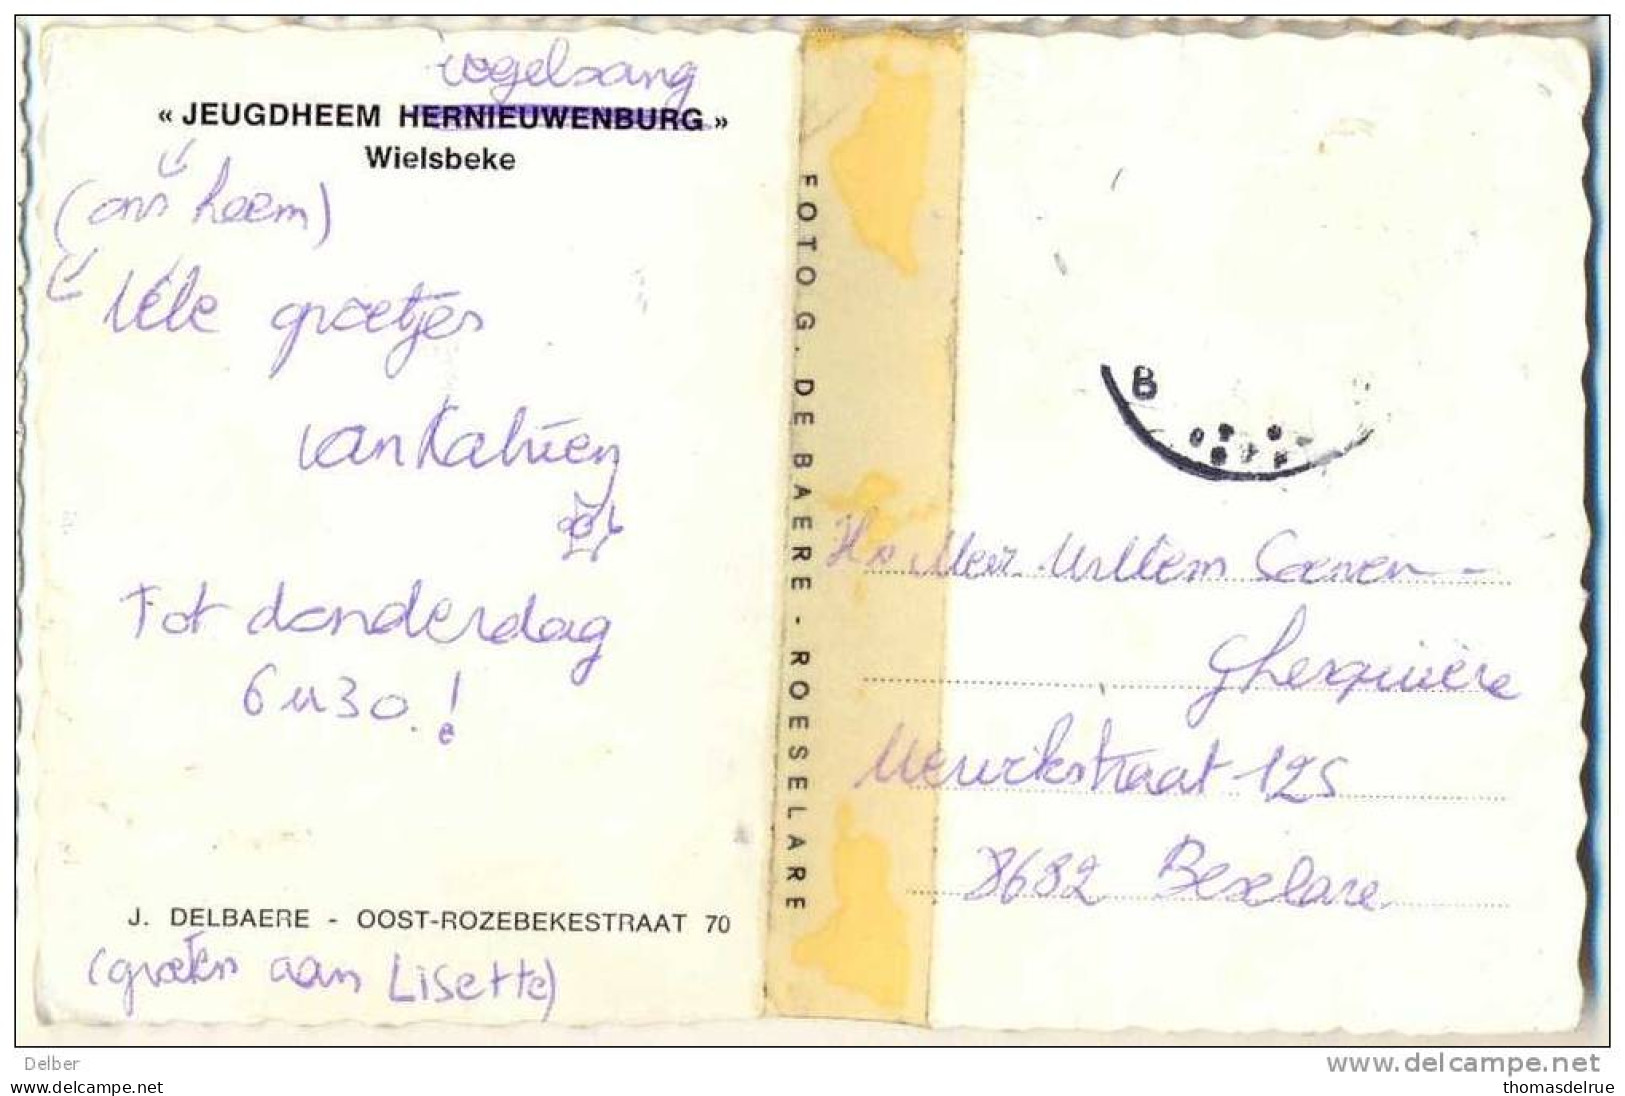 vogelsang
« JEUGDHEEM HERNIEUWENBURG »
Wielsbeke
(ons heem)
Vele groetjes
van Katrien
Tot donderdag
6 u 30.!
J. DELBAERE - OOST-ROZEBEKESTRAAT 70
(groeten aan Lisette)
FOTOG. DE BAERE - ROESELARE
B
Meur Willem Coenen-
Ghesquière
Meurckstraat 125
8682 Beselare
Delber
www.delcampe.net
my collection
thomasdelrue